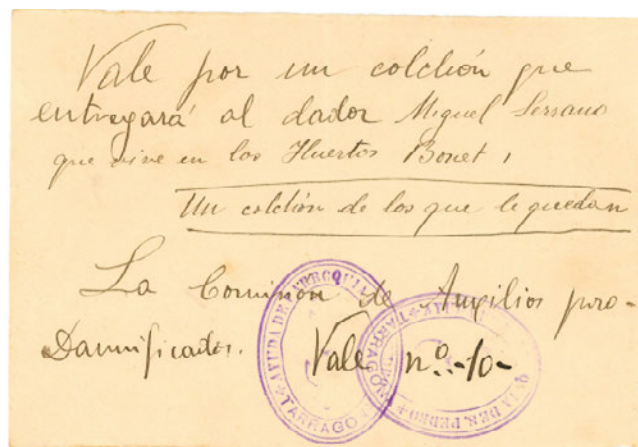 Vale por un colchión que
entregará al dador Miguel Serrano
que vive en los Huertos Bonet,
Un colchión de los que le quedan
La Comision de Auxilios pro-
Damnificados. Vale nº -10-
AYUDA DE TARRAGO
QUIA DE S. PEDRO TARRAGO